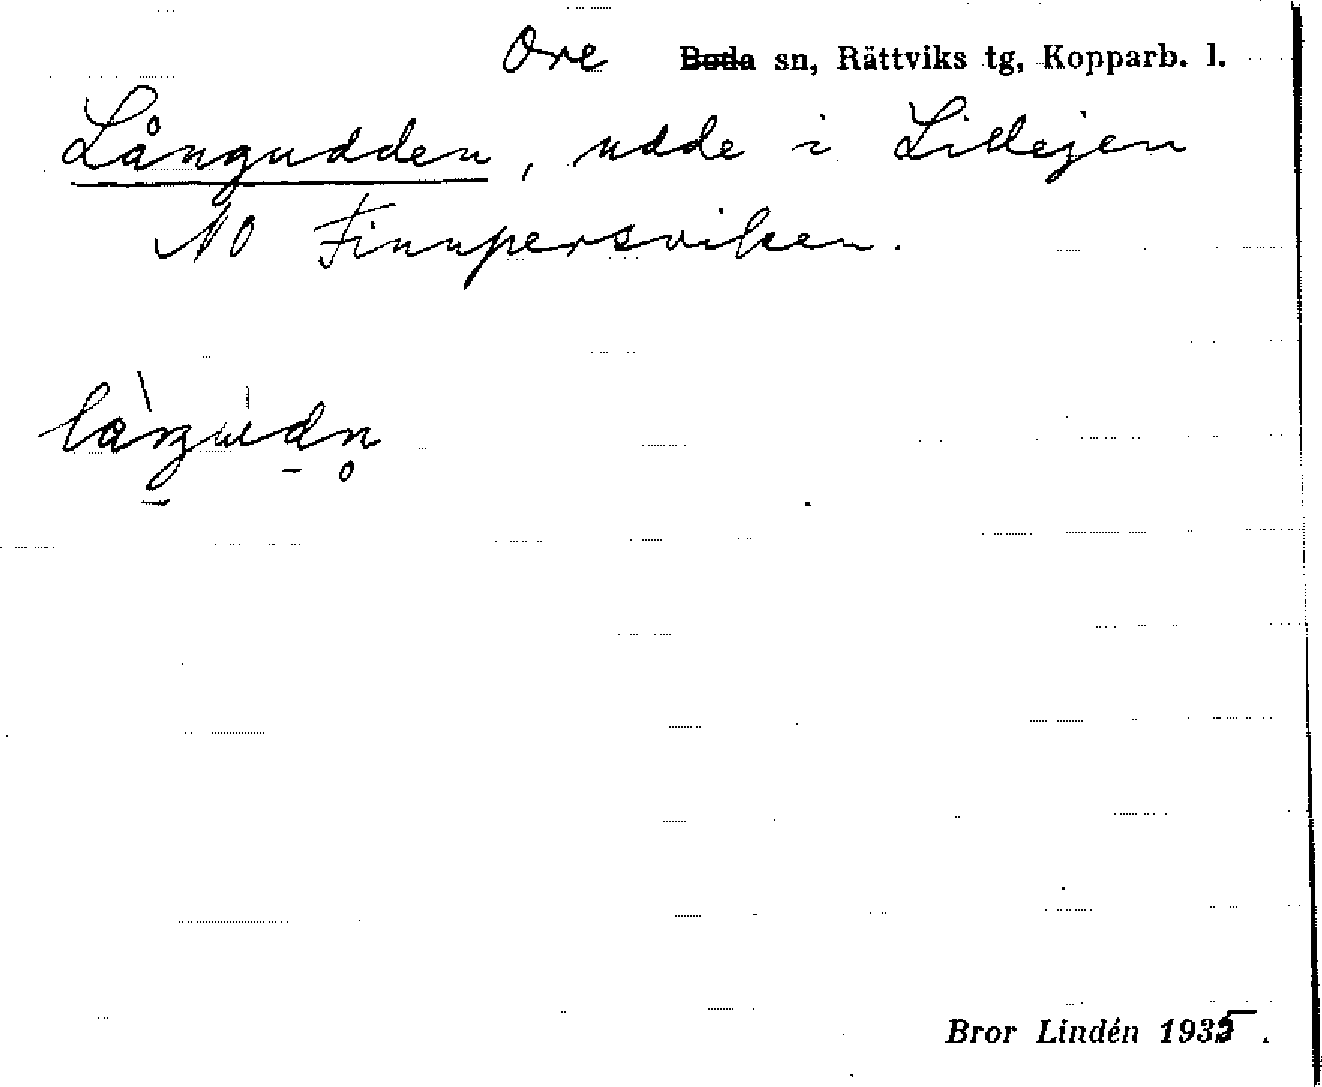 Ore Boda sn, Rättviks tg, Kopparb. l.
Långudden, udde i Lillejen
NO Finnpersviken.
Bror Lindén 1935.